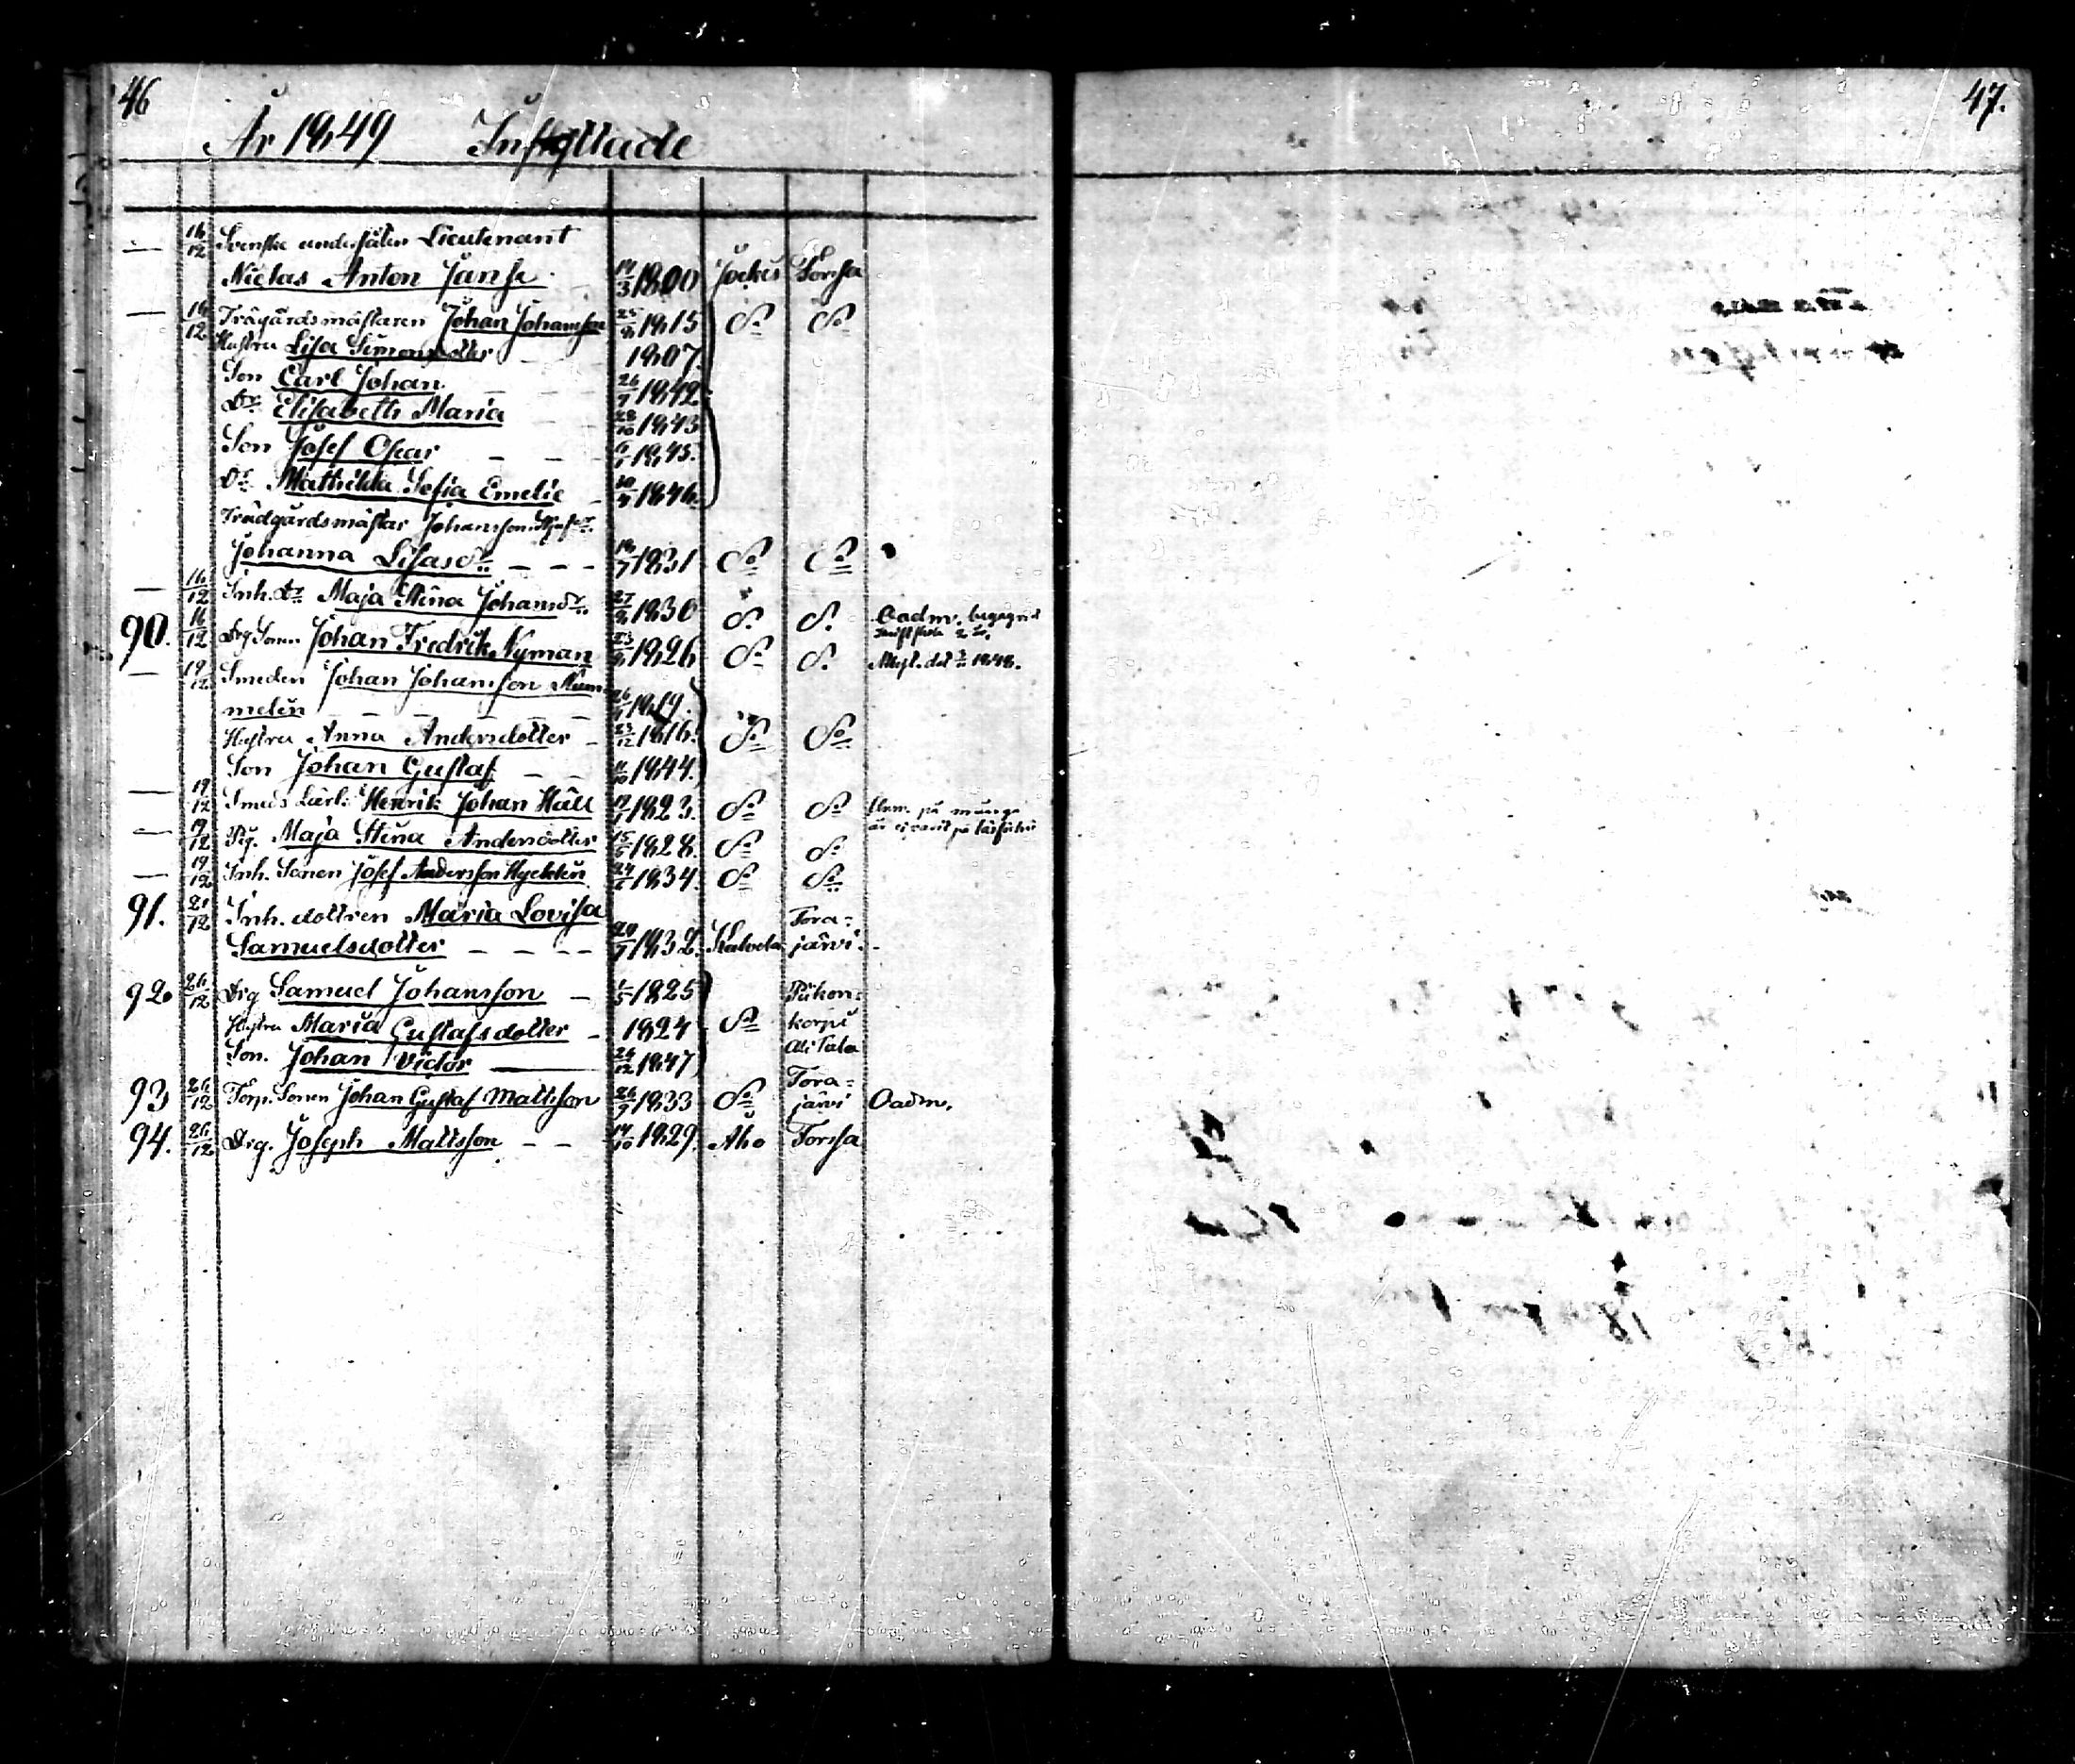 46
År 1849 Inflyttade
— 16/12 Svenske undersåten Lieutenant
Niclas Anton Janse 1800 Jockis Forssa
— 16/12 Trägårdsmästaren Johan Johansson 1815 do do
Hustru Lisa Simonsdotter 1807
Son Carl Johan 26/7 1842
Dr Elisabeth Maria 28/10 1843
Son Josef Oscar 1845
Dr Mathilda Sofia Emelie 1846
Trädgårdsmästar Johanssons
Johanna Lisasdr 1831 do do
— 16/12 Inh. Dr Maja Stina Johansdr 1830 do do Oadm.
90. 16/12 Drg Sonen Johan Fredrik Nyman 1826 do do 1848.
— 19/12 Smeden Johan Johansson Num-
melin 1819
Hustru Anna Andersdotter 23/12 1816 do do
Son Johan Gustaf 1844
— 19/12 Smeds Lärl: Henrik Johan Häll 1823 do do
— 19/12 Pig. Maja Stina Andersdotter 15/5 1828 do do
— 19/12 Inh. Sonen Josef Andersson 1834 do do
91. 21/12 Inh. dottren Maria Lovisa Tora-
Samuelsdotter 1832 Kalvola järvi
92. 26/12 Drg Samuel Johansson 1/5 1825 do
Hustru Maria Gustafsdotter 1824 korpi
Son. Johan Victor 1847
93 26/12 Torp. Sonen Johan Gustaf Mattsson 1833 do Tora-
järvi Oadm.
94. 26/12 Drg. Joseph Mattsson 14/10 1829 Aho Forssa
47.